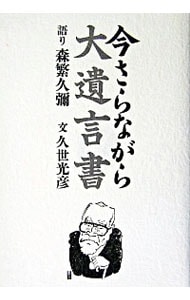 今さらながら
大遺言書
語り 森繁久彌
文 久世光彦